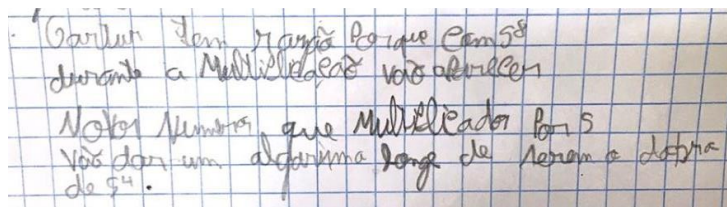 Carlur tem razão Porque Com 5⁸
durante a Multiplicação vão aparecer
Novos Numeros que Multiplicador Por 5
Vão dar um algarismo longe de serem o dobro
de 5⁴.